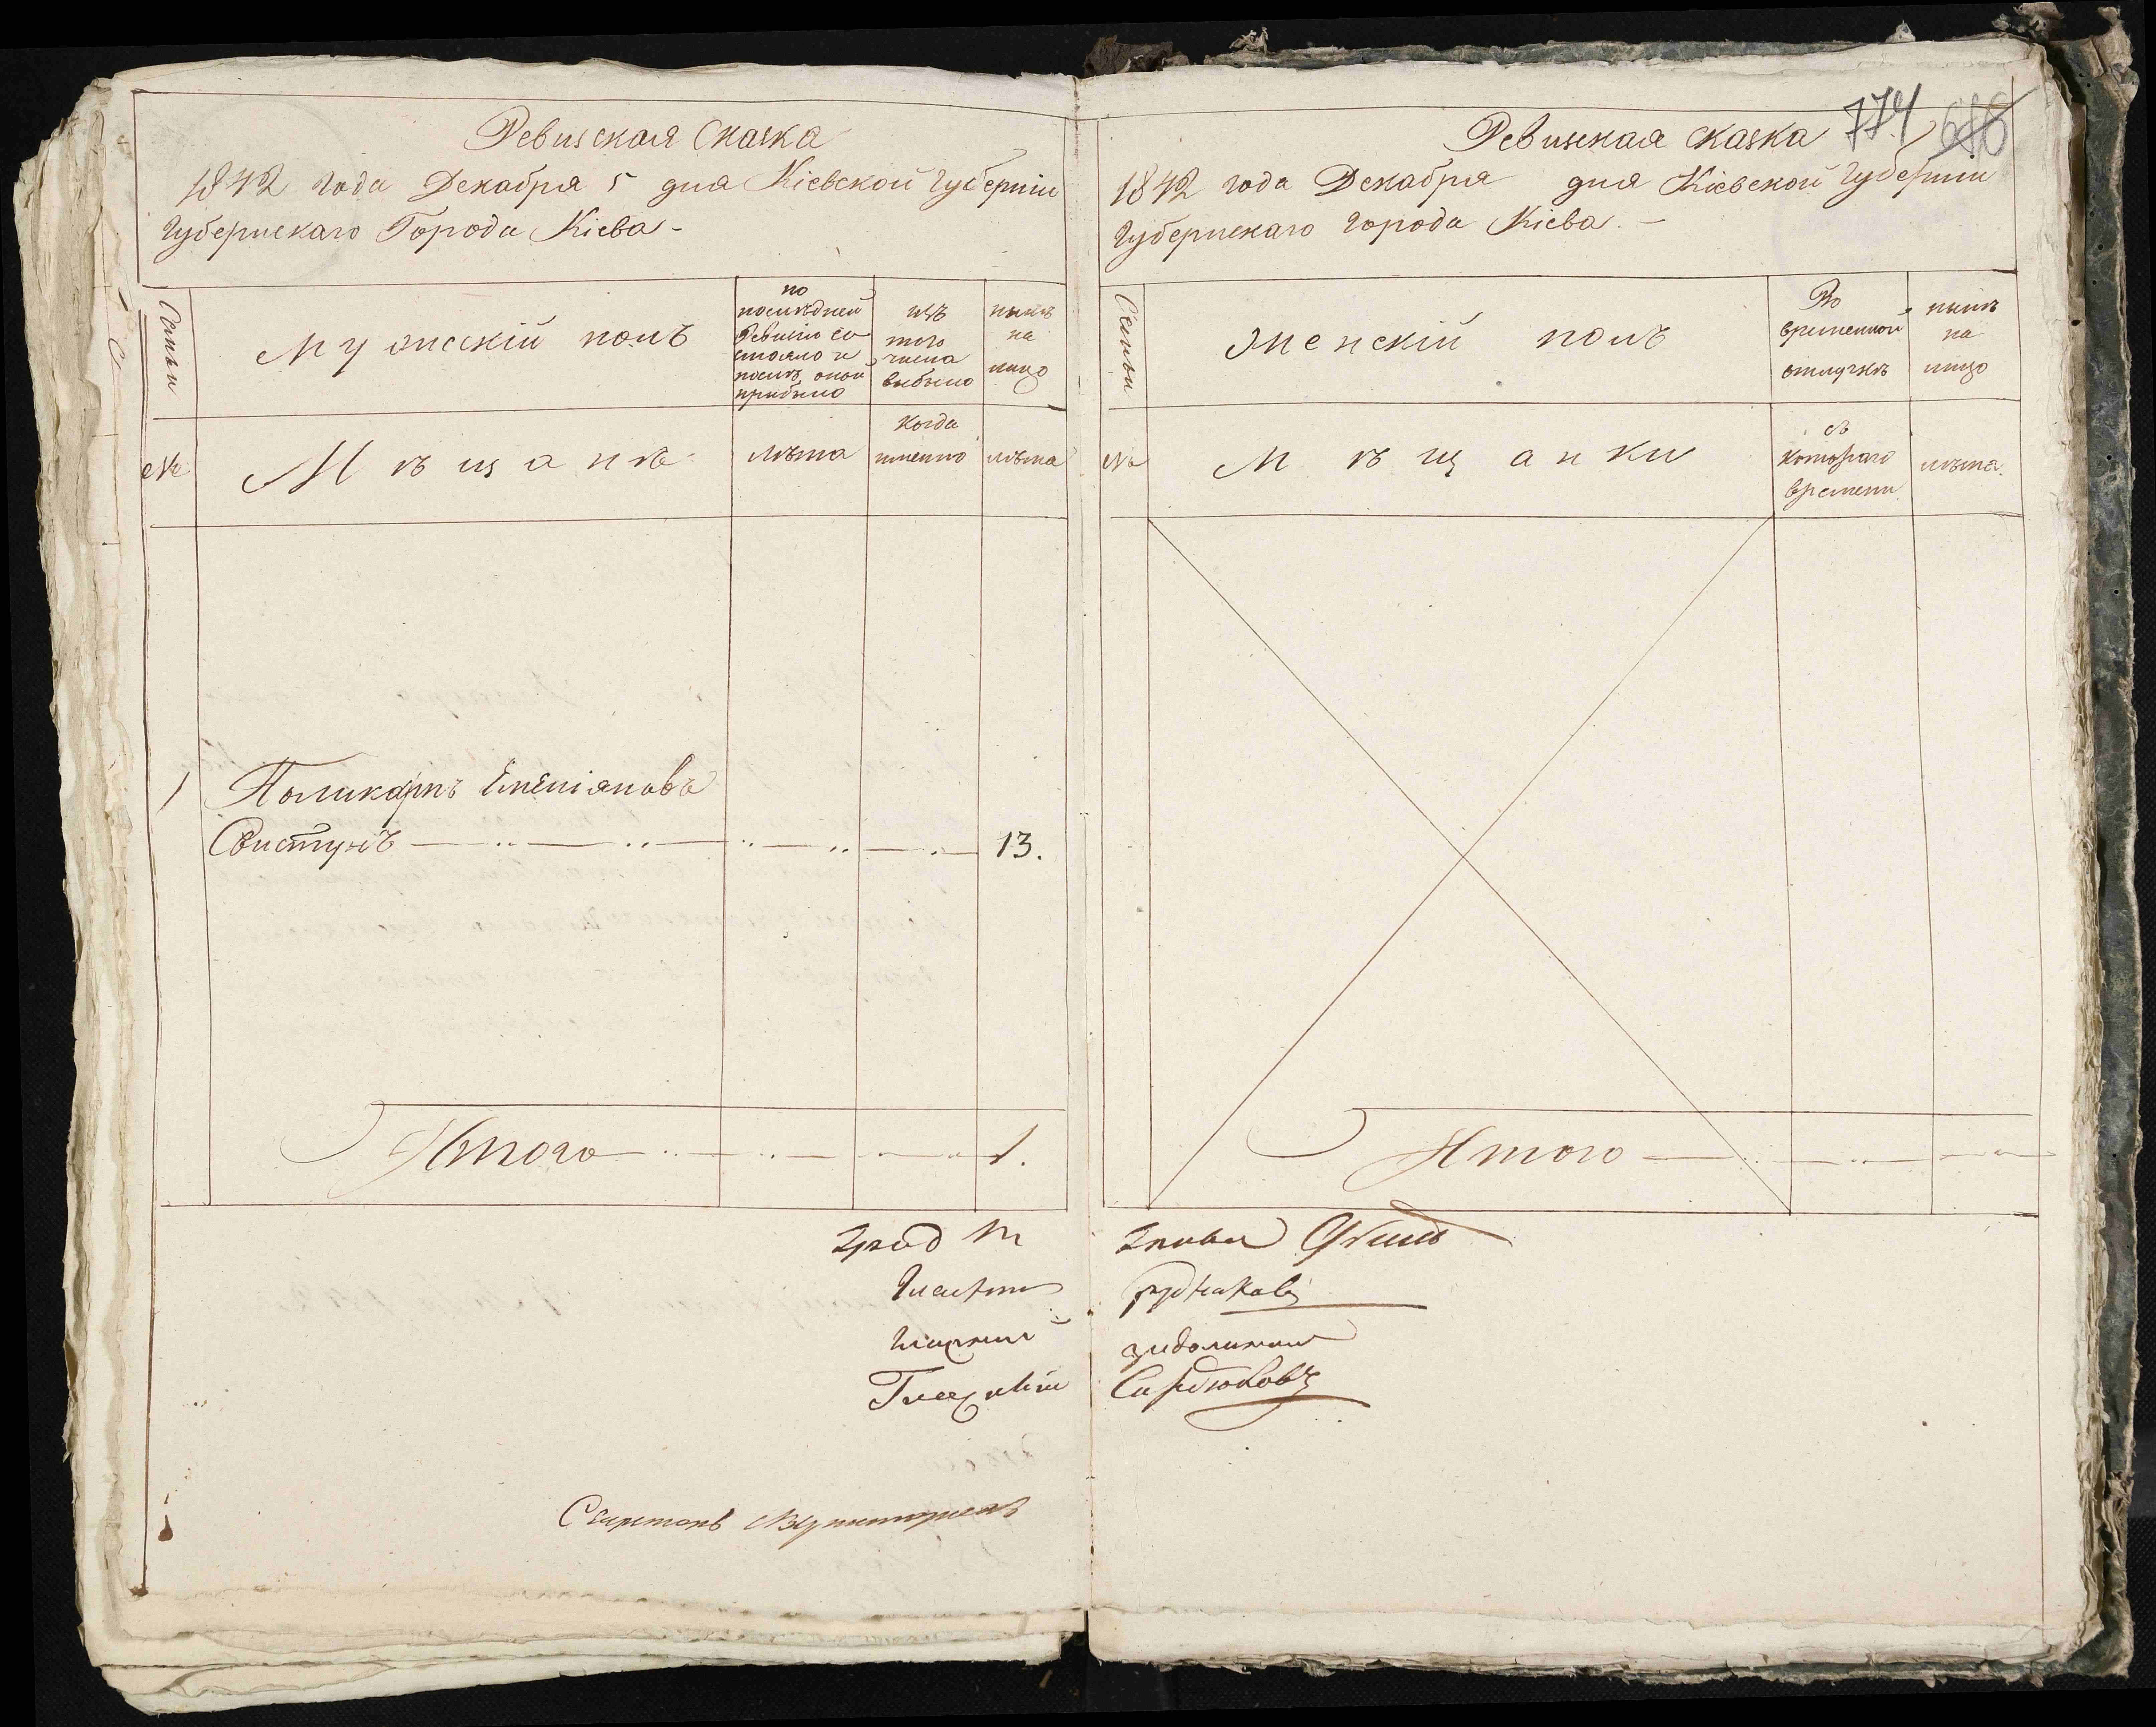 Ревизская Сказка
1842 года Декабря 5 дня Кіевской Губерніи
Губернскаго Города Кіева -
Семьи
Мужескій полъ
по
послѣдней
Ревизіи со
стояло и
послѣ оной
прибыло
изъ
того
числа
выбыло
нынѣ
на
лицо
№
Мѣщане
лѣта
когда
именно
лѣта
1
Поликарпъ Емеліановъ
Свистунъ
13.
Итого
1.
774
Ревизская сказка
1842 года Декабря дня Кіевской Губерніи
Губернскаго города Кіева. -
Семьи
Женскій полъ
Во
временной
отлучкѣ
нынѣ
на
лицо
№
Мѣщанки
съ
котораго
времени
лѣта.
Итого
Град
Гласный
Рудаковъ
Гласный
Гласный
Сердюковъ
Секретарь